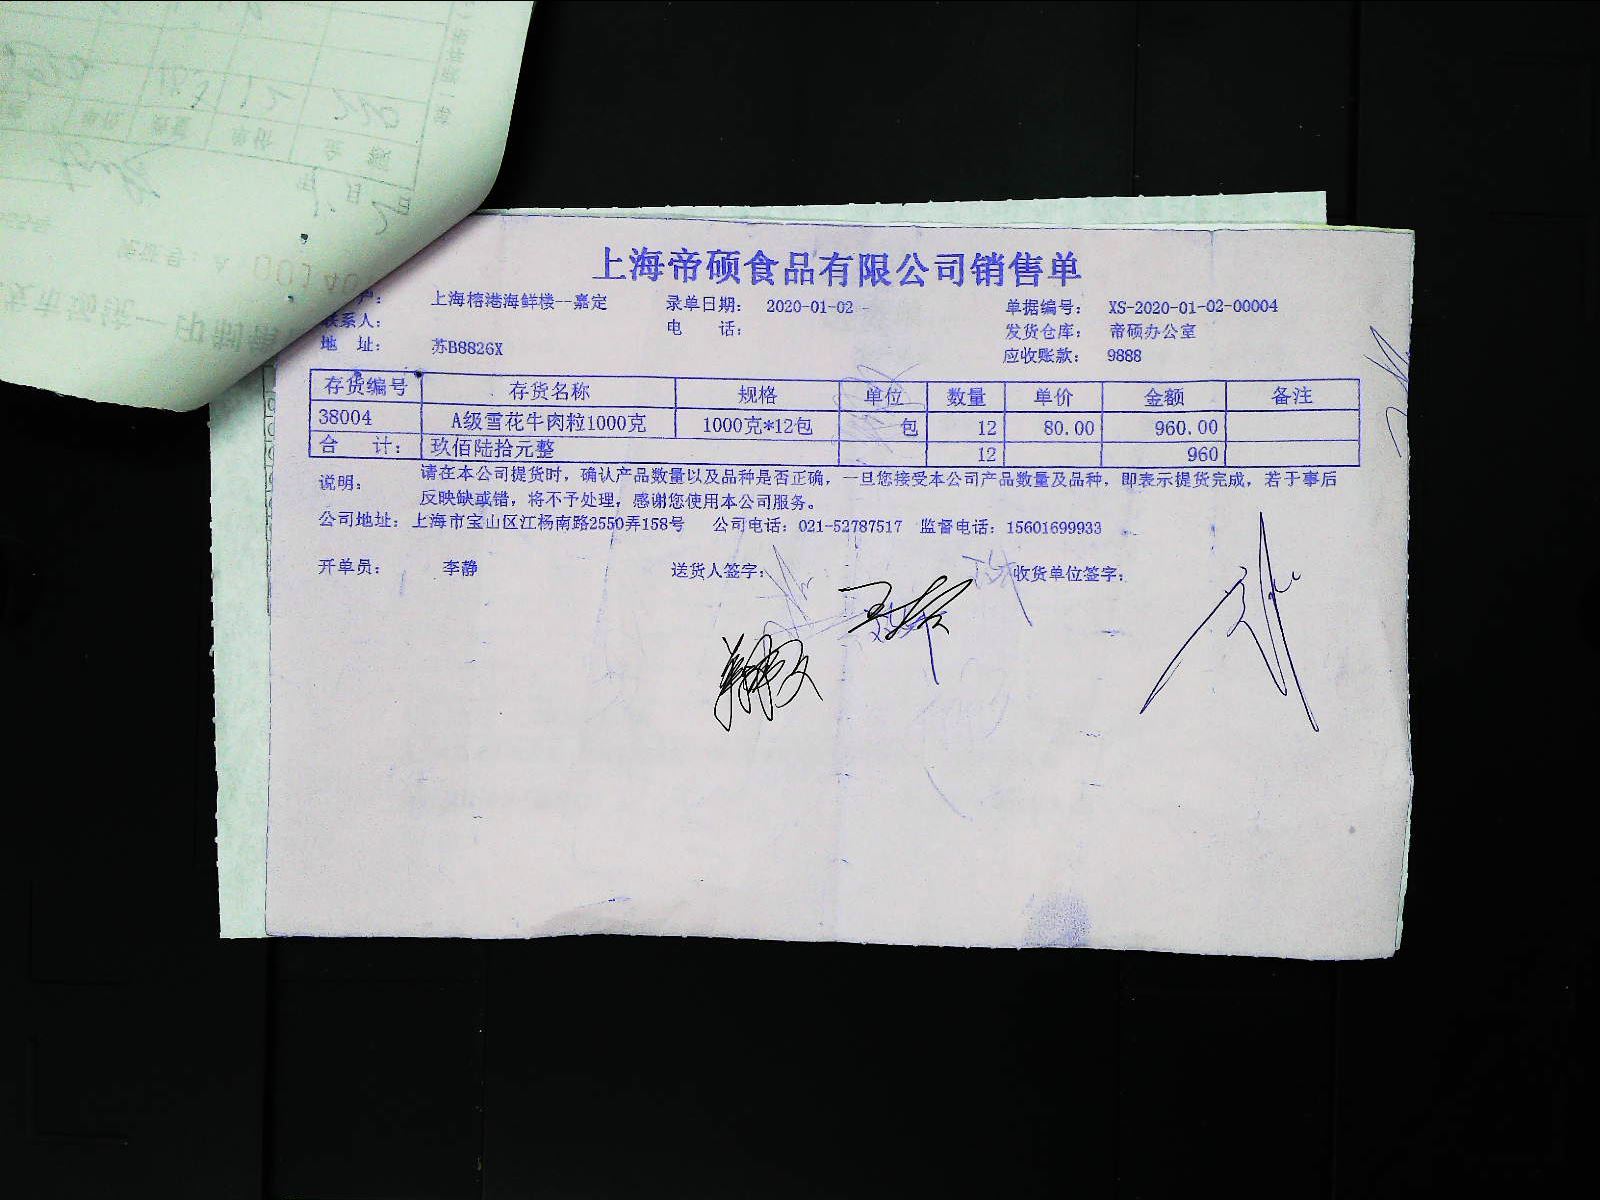 上海帝硕食品有限公司销售单
户： 上海榕港海鲜楼--嘉定 录单日期： 2020-01-02 - 单据编号： XS-2020-01-02-00004
联系人： 电 话： 发货仓库： 帝硕办公室
地 址： 苏B8826X 应收账款： 9888
存货编号 存货名称 规格 单位 数量 单价 金额 备注
38004 A级雪花牛肉粒1000克 1000克*12包 包 12 80.00 960.00
合 计： 玖佰陆拾元整 12 960
说明： 请在本公司提货时，确认产品数量以及品种是否正确，一旦您接受本公司产品数量及品种，即表示提货完成，若于事后
反映缺或错，将不予处理，感谢您使用本公司服务。
公司地址：上海市宝山区江杨南路2550弄158号 公司电话：021-52787517 监督电话：15601699933
开单员： 李静 送货人签字： 收货单位签字：